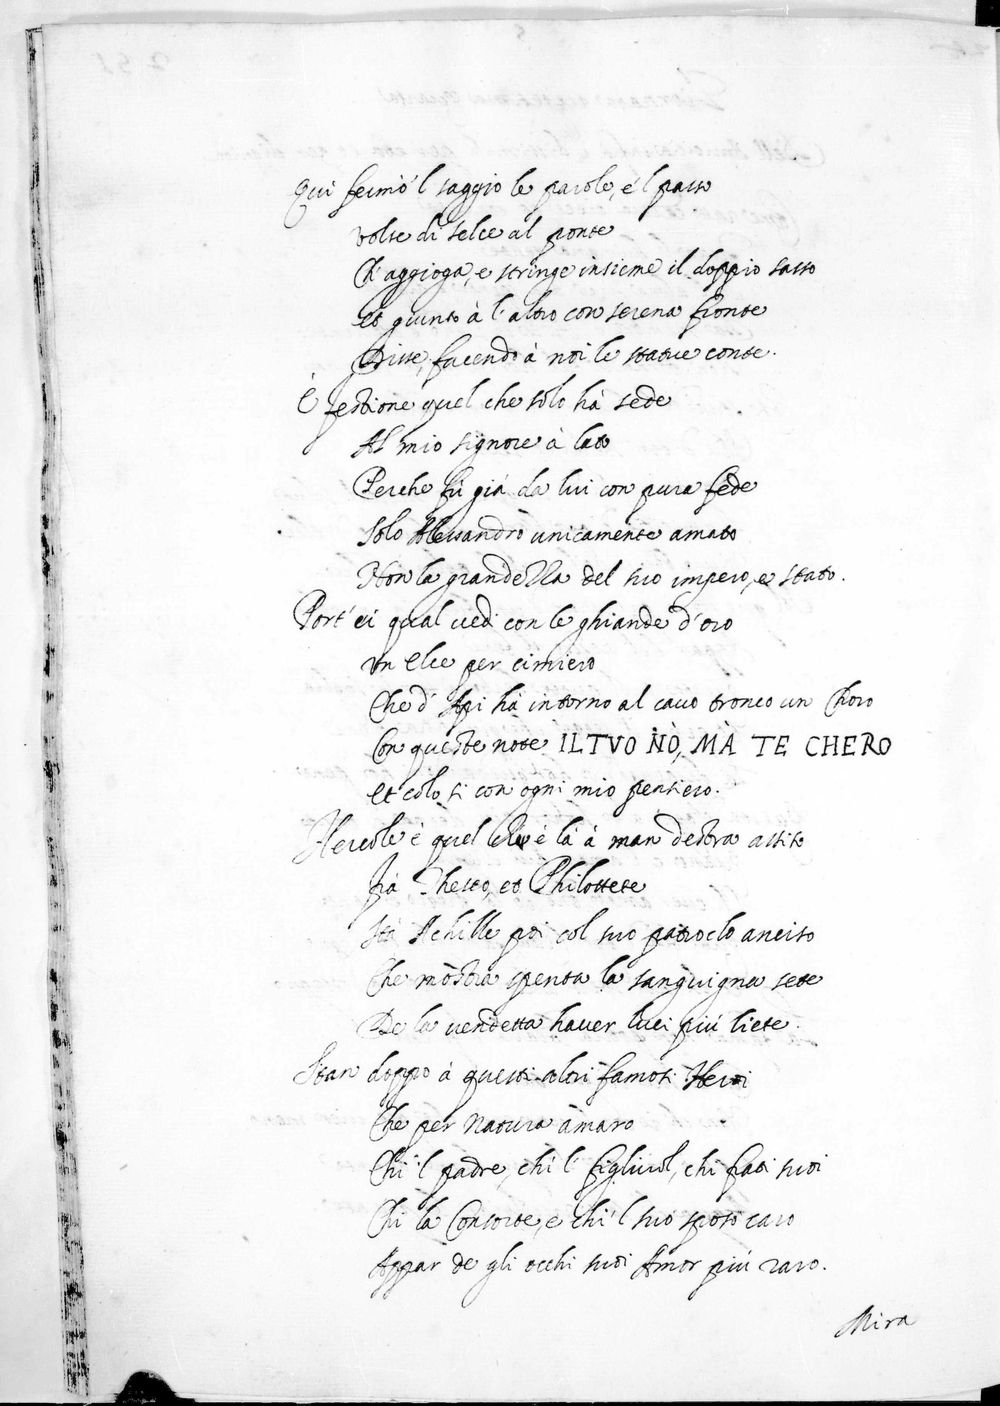 Qui fermò 'l saggio le parole, e 'l passo
volse di selce al ponte
Ch'aggioga, e stringe insieme il doppio sasso
et giunto à l'altro con serena fronte
Disse, facendo à noi le statue conte.
È festione quel che solo hà sede
Al mio signore à lato
Perche fù già da lui con pura fede
Solo Alessandro unicamente amato
Non la grandezza del suo impero, e stato.
Port'ei qual vedi con le ghiande d'oro
un elce per cimiero
Che d'Api hà intorno al cavo tronco un Choro
Con queste note IL TVO NÒ, MÀ TE CHERO
et colo ti con ogni mio pensiero.
Hercole è quel che è là à man destra assiso
frà Theseo, et Philottete
Stà Achille poi col suo patroclo anciso
Che mostra spenta la sanguigna sete
De la vendetta haver luci più liete.
Stan doppo à questi altri famosi Heroi
Che per natura amaro
Chi 'l padre, chi 'l figliuol, chi frati suoi
Chi la Consorte, e chi 'l suo sposo caro
Appar de gli occhi suoi Amor più raro.
Mira